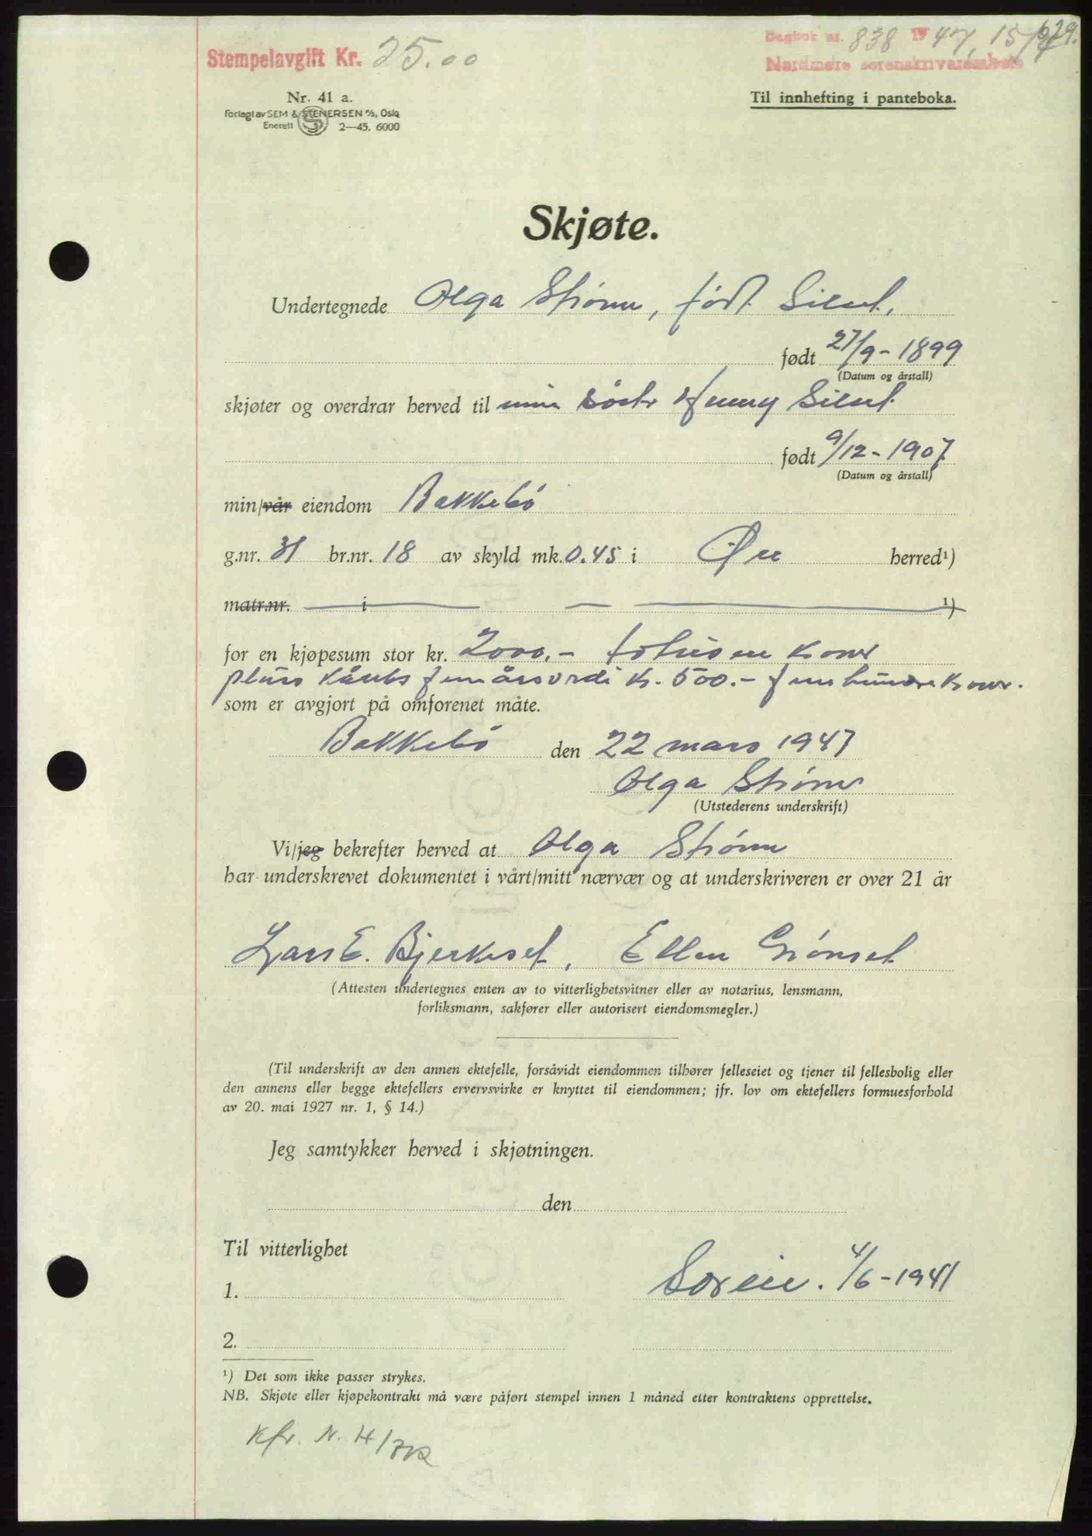 Stempelavgift Kr. 25.00
Dagbok nr. 838 1947, 15/
Nordmøre sorenskriverembete
Nr. 41 a.
Forlagt av SEM & STENERSEN A/S, Oslo
Enerett 2—45. 6000
Til innhefting i panteboka.
Skjøte.
Undertegnede Olga Strømm, født Silset,
født 27/9-1899
(Datum og årstall)
skjøter og overdrar herved til min søster Jenny Silset
født 9/12-1907
(Datum og årstall)
min/vår eiendom Bakkebö
g.nr. 31 br.nr. 18 av skyld mk. 0.45 i Øre herred¹)
matr.nr. i ¹)
for en kjøpesum stor kr. 2000.- totusen kroner
pluss kårets femårsverdi kr. 500.- femhundre kroner.
som er avgjort på omforenet måte.
Bakkebö den 22 mars 1947
Olga Strømm
(Utstederens underskrift)
Vi/jeg bekrefter herved at Olga Strømm
har underskrevet dokumentet i vårt/mitt nærvær og at underskriveren er over 21 år
Lars E. Bjerkeset, Ellen Grønset
(Attesten undertegnes enten av to vitterlighetsvitner eller av notarius, lensmann,
forliksmann, sakfører eller autorisert eiendomsmegler.)
(Til underskrift av den annen ektefelle, forsåvidt eiendommen tilhører felleseiet og tjener til fellesbolig eller
den annens eller begge ektefellers ervervsvirke er knyttet til eiendommen; jfr. lov om ektefellers formuesforhold
av 20. mai 1927 nr. 1, § 14.)
Jeg samtykker herved i skjøtningen.
den
Til vitterlighet
1. Særeie. 4/6-1941
2.
¹) Det som ikke passer strykes.
NB. Skjøte eller kjøpekontrakt må være påført stempel innen 1 måned etter kontraktens opprettelse.
Kfr. N. H/